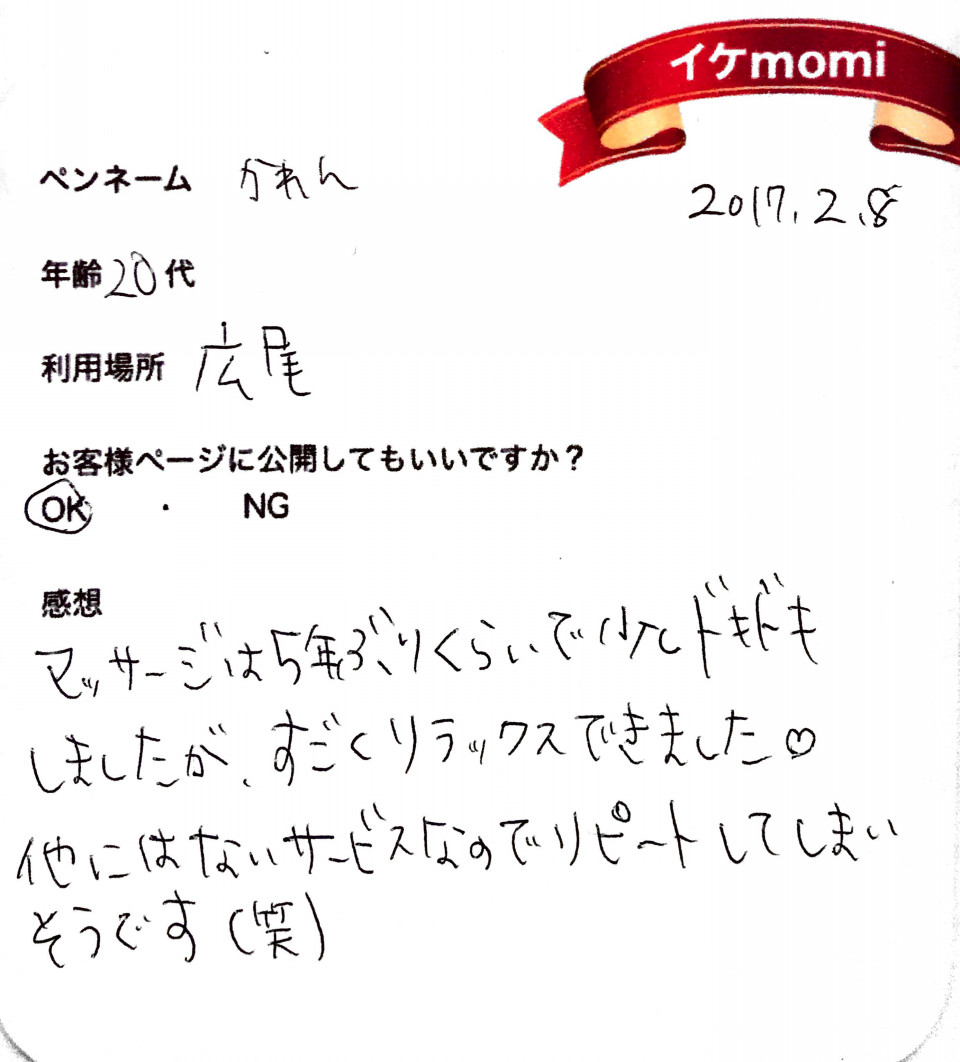 イケmomi
2017.2.8
ペンネーム かれん
年齢20代
利用場所 広尾
お客様ページに公開してもいいですか？
OK ・ NG
感想
マッサージは5年ぶりくらいで少しドキドキ
しましたが、すごくリラックスできました♡
他にはないサービスなのでリピートしてしまい
そうです(笑)